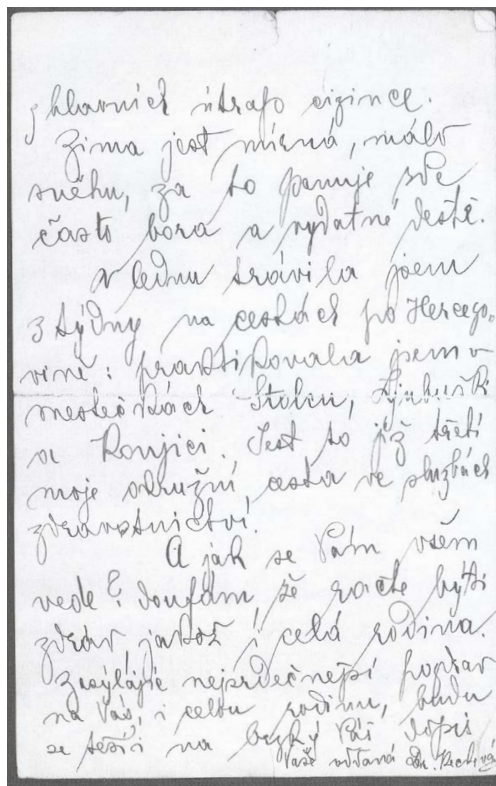 z hlavních útrap cizince.
Zima jest mírná, málo
sněhu, za to panuje zde
často bora a vydatné deště.
V lednu trávila jsem
3 týdny na cestách po Hercego-
vině: praktikovala jsem v
mestečkách Stolcu, Ljubuški
a Konjici. Jest to již třetí
moje okružní cesta ve službách
zdravotnictví.
A jak se Vám všem
vede? Doufám, že račte býti
zdráv, jakož i celá rodina.
Zasýlajíc nejsrdečnejší pozdrav
na Vás, i celou rodinu, budu
se těšiti na brzký Váš dopis
Vaše oddaná Dr.